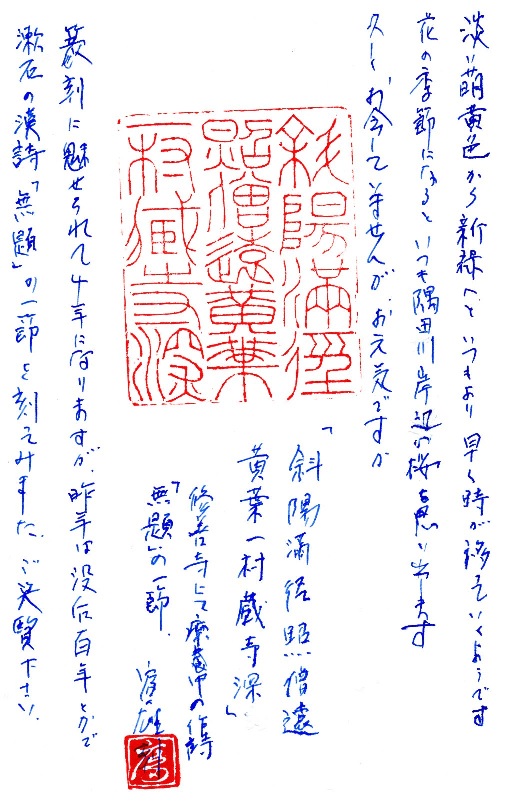 淡い萌黄色から新緑へと いつもより早く時が移っていくようです
花の季節になると いつも隅田川岸辺の桜を思い出します
久しくお会いしていませんが、お元気ですか
斜陽満径
照僧遠黄葉
一村蔵寺深
「斜陽満径照僧遠
黄葉一村蔵寺深」
修善寺にて療養中の作詩
「無題」の一節.
篆刻に魅せられて4年になりますが、昨年は没后百年とかで
漱石の漢詩「無題」の一節を刻してみました。ご笑覧下さい.